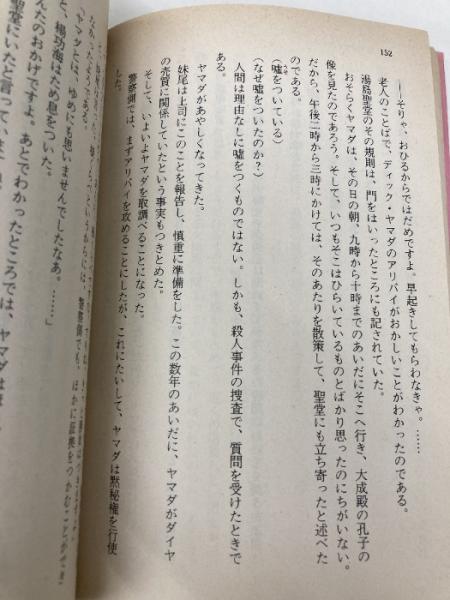 152
――そりゃ、おひるからではだめですよ。早起きしてもらわなきゃ。……
老人のことばで、ディック・ヤマダのアリバイがおかしいことがわかったのである。
湯島聖堂のその規則は、門をはいったところにも記されていた。
おそらくヤマダは、その日の朝、九時から十時までのあいだにそこへ行き、大成殿の孔子の
像を見たのであろう。そして、いつもそこはひらいているものとばかり思ったのにちがいない。
だから、午後二時から三時にかけては、そのあたりを散策して、聖堂にも立ち寄ったと述べた
のである。
(嘘をついている)
(なぜ嘘をついたのか?)
人間は理由なしに嘘をつくものではない。しかも、殺人事件の捜査で、質問を受けたときで
ある。
ヤマダがあやしくなってきた。
妹尾は上司にこのことを報告し、慎重に準備をした。この数年のあいだに、ヤマダがダイヤ
の売買に関係していたという事実もつきとめた。
そして、いよいよヤマダを取調べることになった。
警察側では、まずアリバイを攻めることにしたが、これにたいして、ヤマダは黙秘権を行使
した。
警察側でも、ほかに証拠をつかむことができ
なかったようである。
ヤマダとは、ゆめにも思いませんでしたなあ。……」
と、楊功海はため息をついた。
んたのおかげですよ。あとでわかったところでは、ヤマダは
聖堂にいたと言っていま